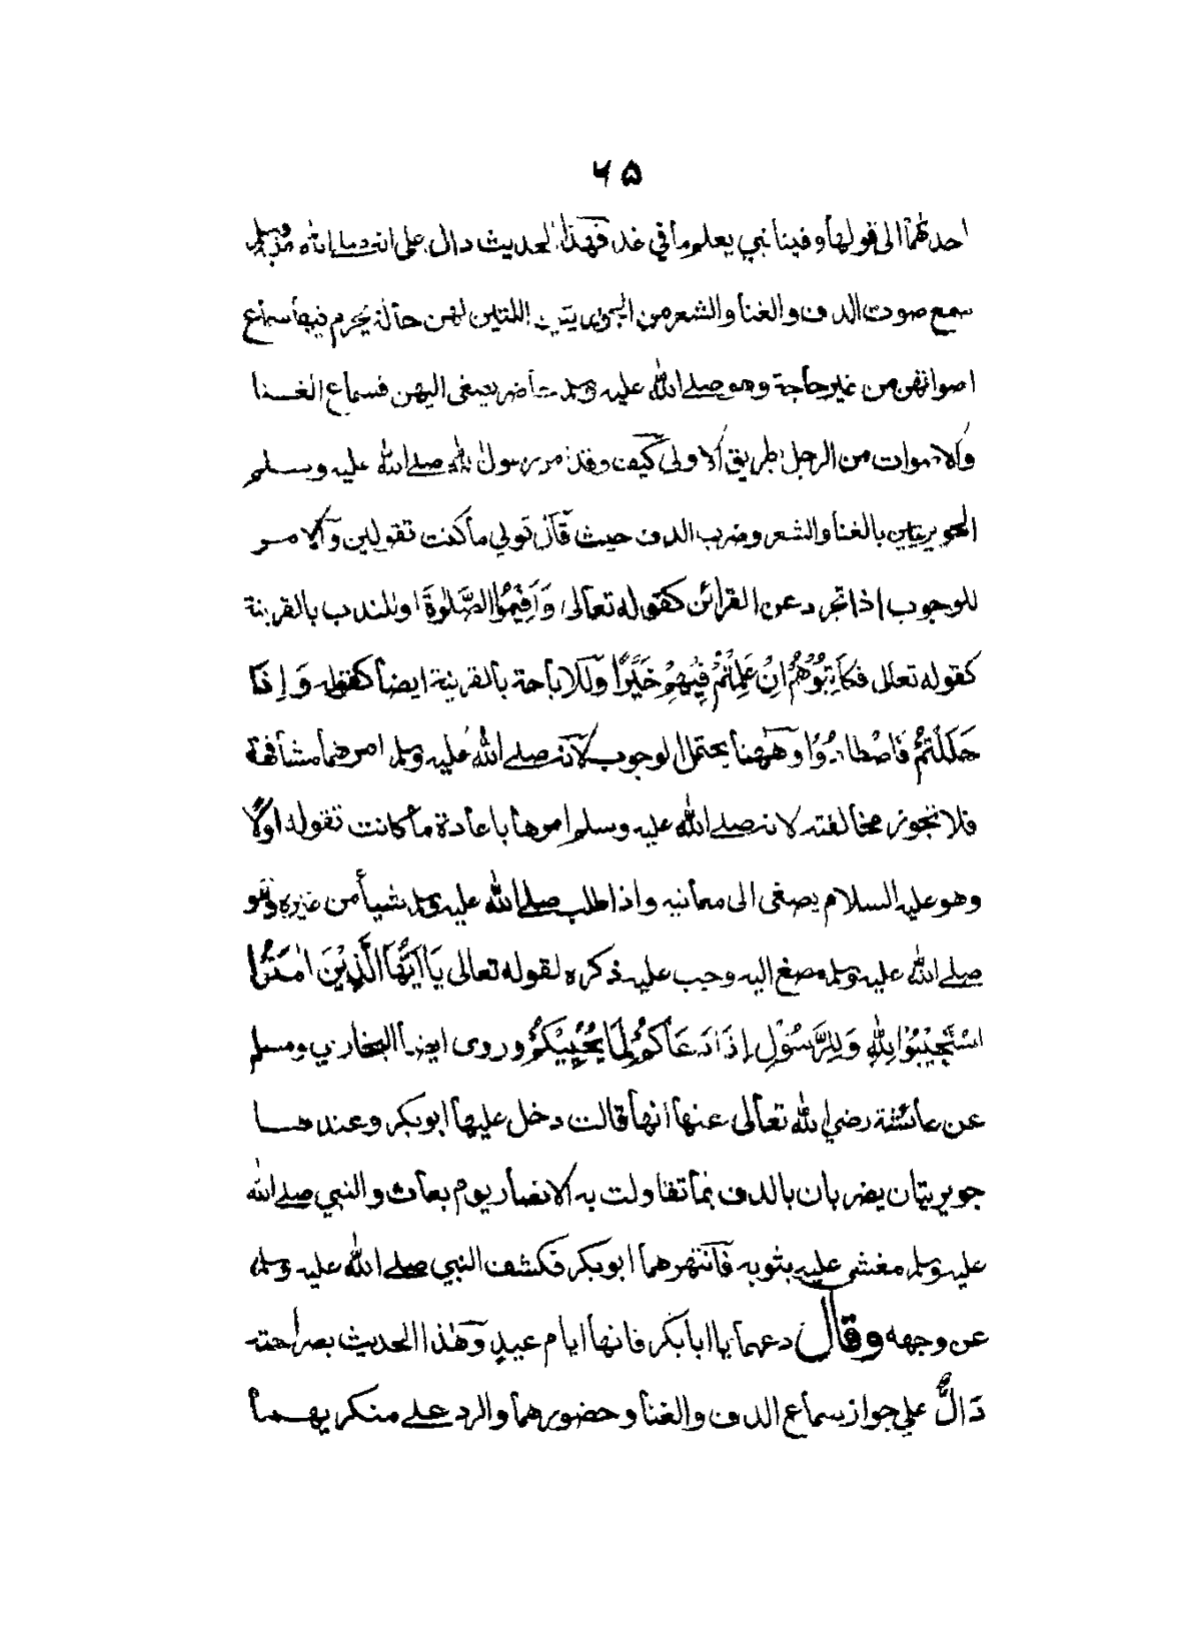 ۶۵
احدىهما الى قولها وفينا نبي يعلم ما في غد فهذا الحديث دال على انه صلى الله عليه وسلم
سمع صوت الدف والغنا والشعر من الجويريتين اللتين لهن حالة يحرم فيها سماع
اصواتهن من غير حاجة وهو صلے الله عليه وسلم حاضر يصغى اليهن فسماع الغنا
والاصوات من الرجل بطريق الاولى كيف وقد امر رسول الله صلے الله عليه وسلم
الجويريتين بالغنا والشعر وضرب الدف حيث قال قولي ما كنت تقولين والامر
للوجوب اذا تجرد عن القرائن كقوله تعالى وَاَقِيْمُوا الصَّلٰوةَ او للندب بالقرينة
كقوله تعالى فَكَاتِبُوْهُمْ اِنْ عَلِمْتُمْ فِيْهِمْ خَيْرًا وللاباحة بالقرينة ايضا كقوله وَاِذَا
حَلَلْتُمْ فَاصْطَادُوْا وههنا يحتمل الوجوب لانه صلے الله عليه وسلم امرهما مشافهة
فلا تجوز مخالفته لانه صلے الله عليه وسلم امرها باعادة ما كانت تقوله اولا
وهو عليه السلام يصغى الى معانيه واذا طلب صلے الله عليه وسلم شيأ من غيره وهو
صلے الله عليه وسلم مصغ اليه وجب عليه ذكره لقوله تعالى يَا اَيُّهَا الَّذِيْنَ اٰمَنُوا
اسْتَجِيْبُوْا لِلّٰهِ وَلِلرَّسُوْلِ اِذَا دَعَاكُمْ لِمَا يُحْيِيْكُمْ وروى ايضا البخاري ومسلم
عن عائشة رضي الله تعالى عنها انها قالت دخل عليها ابوبكر وعندها
جويريتان يضربان بالدف بما تقاولت به الانصار يوم بعاث والنبي صلے الله
عليه وسلم مغشى عليه بثوبه فانتهرهما ابوبكر فكشف النبي صلے الله عليه وسلم
عن وجهه وقال دعهما يا ابا بكر فانها ايام عيد وهذا الحديث بصراحته
دَالٌّ على جواز سماع الدف والغنا وحضورهما والرد علے منكريهما